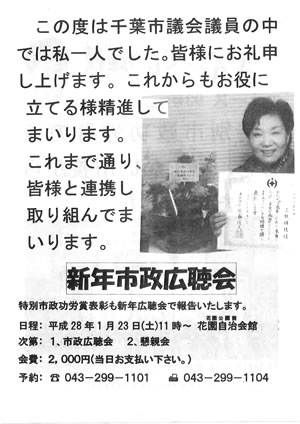 この度は千葉市議会議員の中
では私一人でした。皆様にお礼申
し上げます。これからもお役に
立てる様精進して
まいります。
これまで通り、
皆様と連携し
取り組んでま
いります。
新年市政広聴会
特別市政功労賞表彰も新年広聴会で報告いたします。
花園公園前
日程: 平成28年1月23日(土)11時〜 花園自治会館
次第: 1、市政広聴会 2、懇親会
会費: 2,000円(当日お支払い下さい。)
予約: ☎ 043-299-1101 📠 043-299-1104